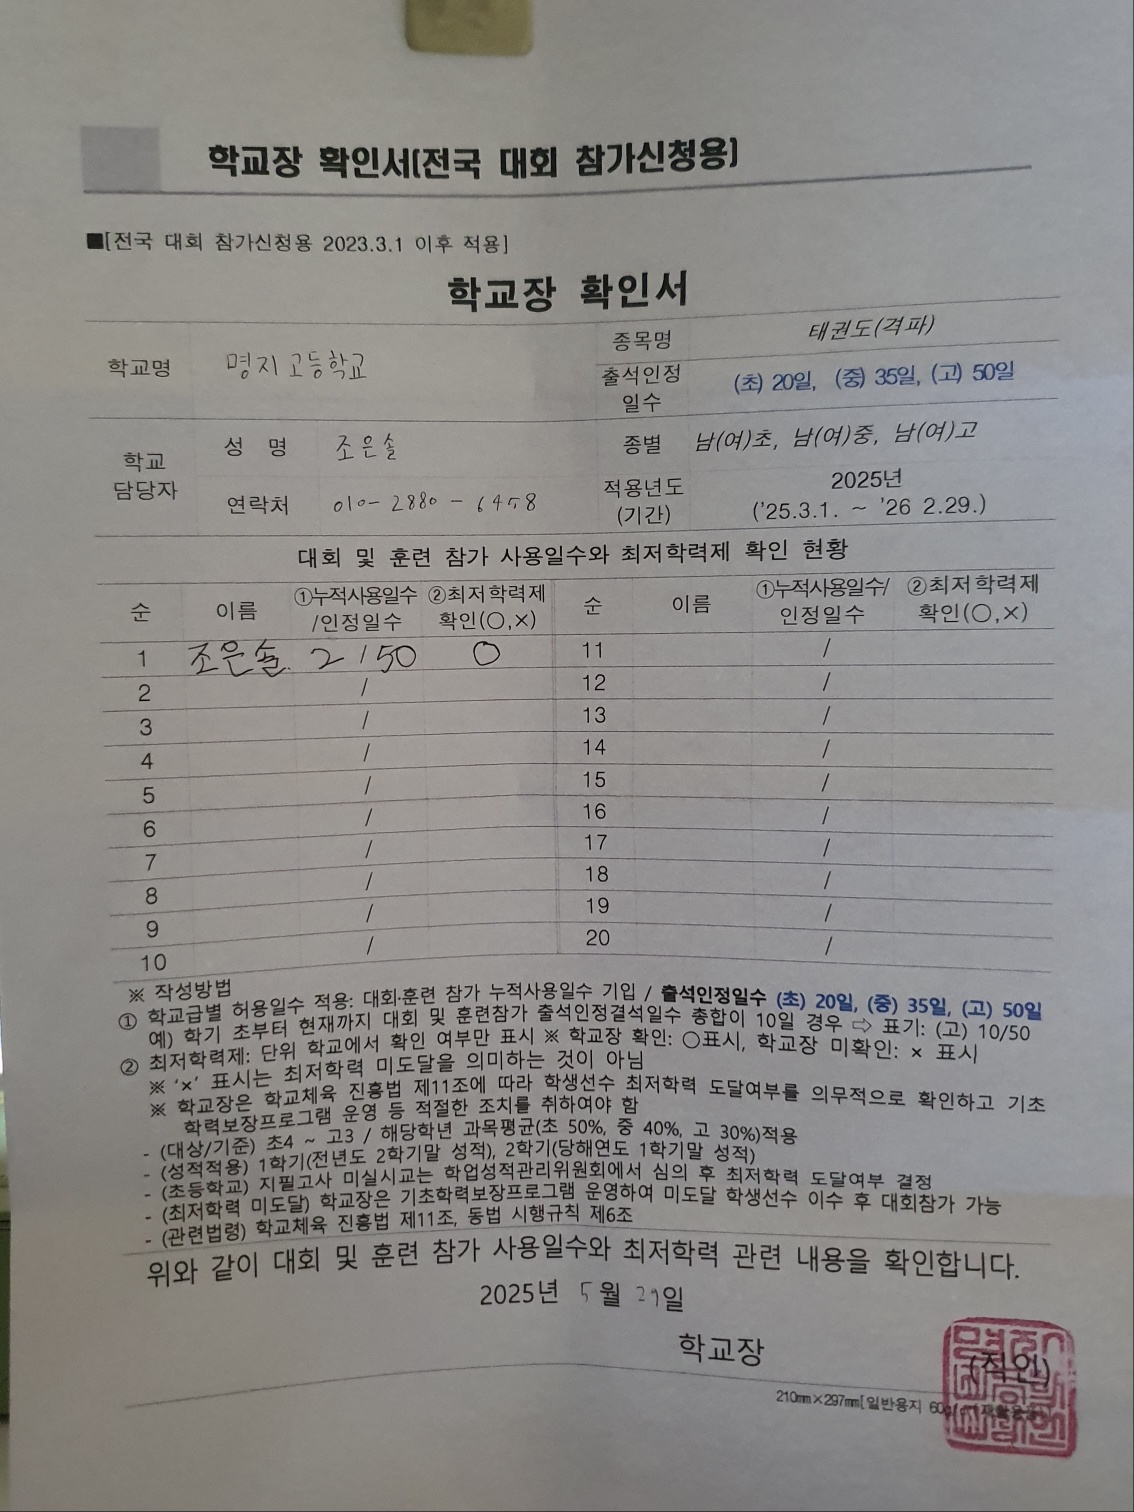 학교장 확인서(전국 대회 참가신청용)
■[전국 대회 참가신청용 2023.3.1 이후 적용]
학교장 확인서
학교명 명지고등학교 종목명 태권도(격파)
출석인정 일수 (초) 20일, (중) 35일, (고) 50일
학교 담당자 성 명 조은솔 종별 남(여)초, 남(여)중, 남(여)고
연락처 010-2880-6458 적용년도 (기간) 2025년 ('25.3.1. ~ '26 2.29.)
대회 및 훈련 참가 사용일수와 최저학력제 확인 현황
순 이름 ①누적사용일수/인정일수 ②최저학력제 확인(○,×) 순 이름 ①누적사용일수/인정일수 ②최저학력제 확인(○,×)
1 조은솔. 2/50 ○ 11 /
2 / 12 /
3 / 13 /
4 / 14 /
5 / 15 /
6 / 16 /
7 / 17 /
8 / 18 /
9 / 19 /
10 / 20 /
※ 작성방법
① 학교급별 허용일수 적용: 대회·훈련 참가 누적사용일수 기입 / 출석인정일수 (초) 20일, (중) 35일, (고) 50일
예) 학기 초부터 현재까지 대회 및 훈련참가 출석인정결석일수 총합이 10일 경우 ⇨ 표기: (고) 10/50
② 최저학력제: 단위 학교에서 확인 여부만 표시 ※ 학교장 확인: ○표시, 학교장 미확인: × 표시
※ '×' 표시는 최저학력 미도달을 의미하는 것이 아님
※ 학교장은 학교체육 진흥법 제11조에 따라 학생선수 최저학력 도달여부를 의무적으로 확인하고 기초
학력보장프로그램 운영 등 적절한 조치를 취하여야 함
- (대상/기준) 초4 ~ 고3 / 해당학년 과목평균(초 50%, 중 40%, 고 30%)적용
- (성적적용) 1학기(전년도 2학기말 성적), 2학기(당해연도 1학기말 성적)
- (초등학교) 지필고사 미실시교는 학업성적관리위원회에서 심의 후 최저학력 도달여부 결정
- (최저학력 미도달) 학교장은 기초학력보장프로그램 운영하여 미도달 학생선수 이수 후 대회참가 가능
- (관련법령) 학교체육 진흥법 제11조, 동법 시행규칙 제6조
위와 같이 대회 및 훈련 참가 사용일수와 최저학력 관련 내용을 확인합니다.
2025년 5월 29일
학교장 (직인)
210㎜×297㎜[일반용지